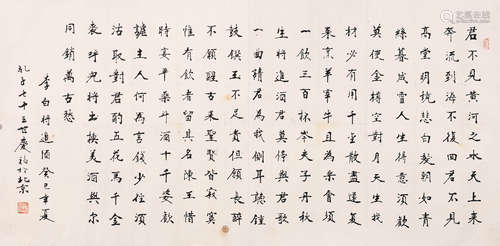 君不見黃河之水天上來
奔流到海不復回君不見
高堂明鏡悲白髮朝如青
絲暮成雪人生得意須歡
莫使金樽空對月天生我
材必有用千金散盡還復
來烹羊宰牛且為樂會須
一飲三百杯岑夫子丹秋
生将進酒君莫停與君歌
一曲請君為我側耳聽鐘
鼓饌玉不足貴但願長醉
不願醒古來聖賢皆寂寞
惟有飲者留其名陳王惜
時宴平樂斗酒十千姿歡
謔主人何為言錢少徑須
沽取對君酌五花馬千金
裘呼兒将出換美酒與尔
同銷萬古愁
李白将進酒癸巳年夏
孔子七十三世慶福於北京